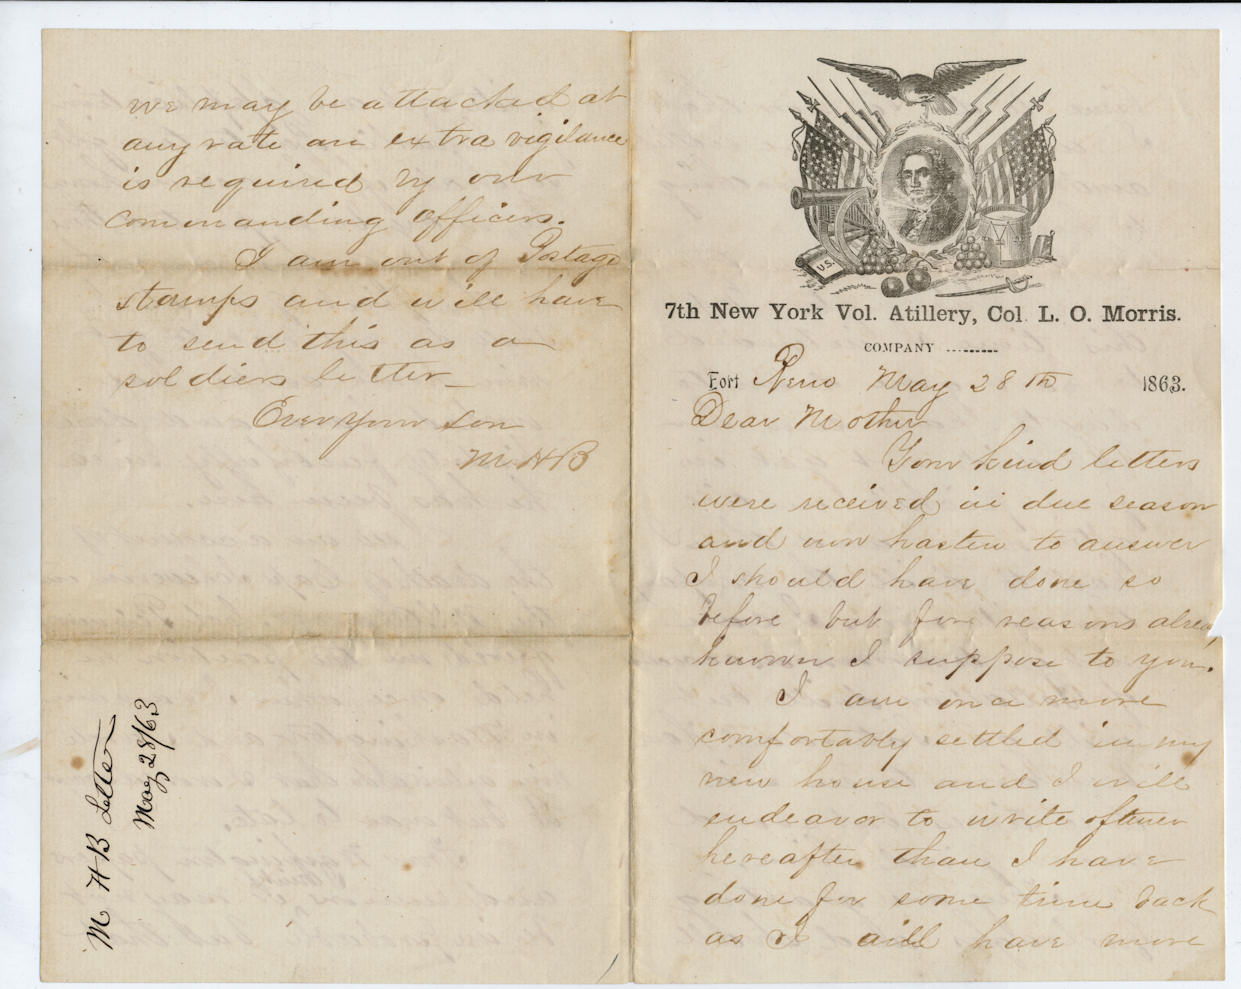 we may be attacked at
any rate an extra vigilance
is required by our
commanding officers.
I am out of Postage
stamps and will have
to send this as a
soldiers letter
Ever Your Son
M H B
M H B Letter
May 28/63
U.S.
7th New York Vol. Atillery, Col. L. O. Morris.
COMPANY
Fort Reno May 28th 1863.
Dear Mother
Your kind letters
were received in due season
and now hasten to answer
I should have done so
before but for reasons alrea
known I suppose to you.
I am once more
comfortably settled in my
new house and I will
endeavor to write oftener
hereafter than I have
done for some time back
as I will have more